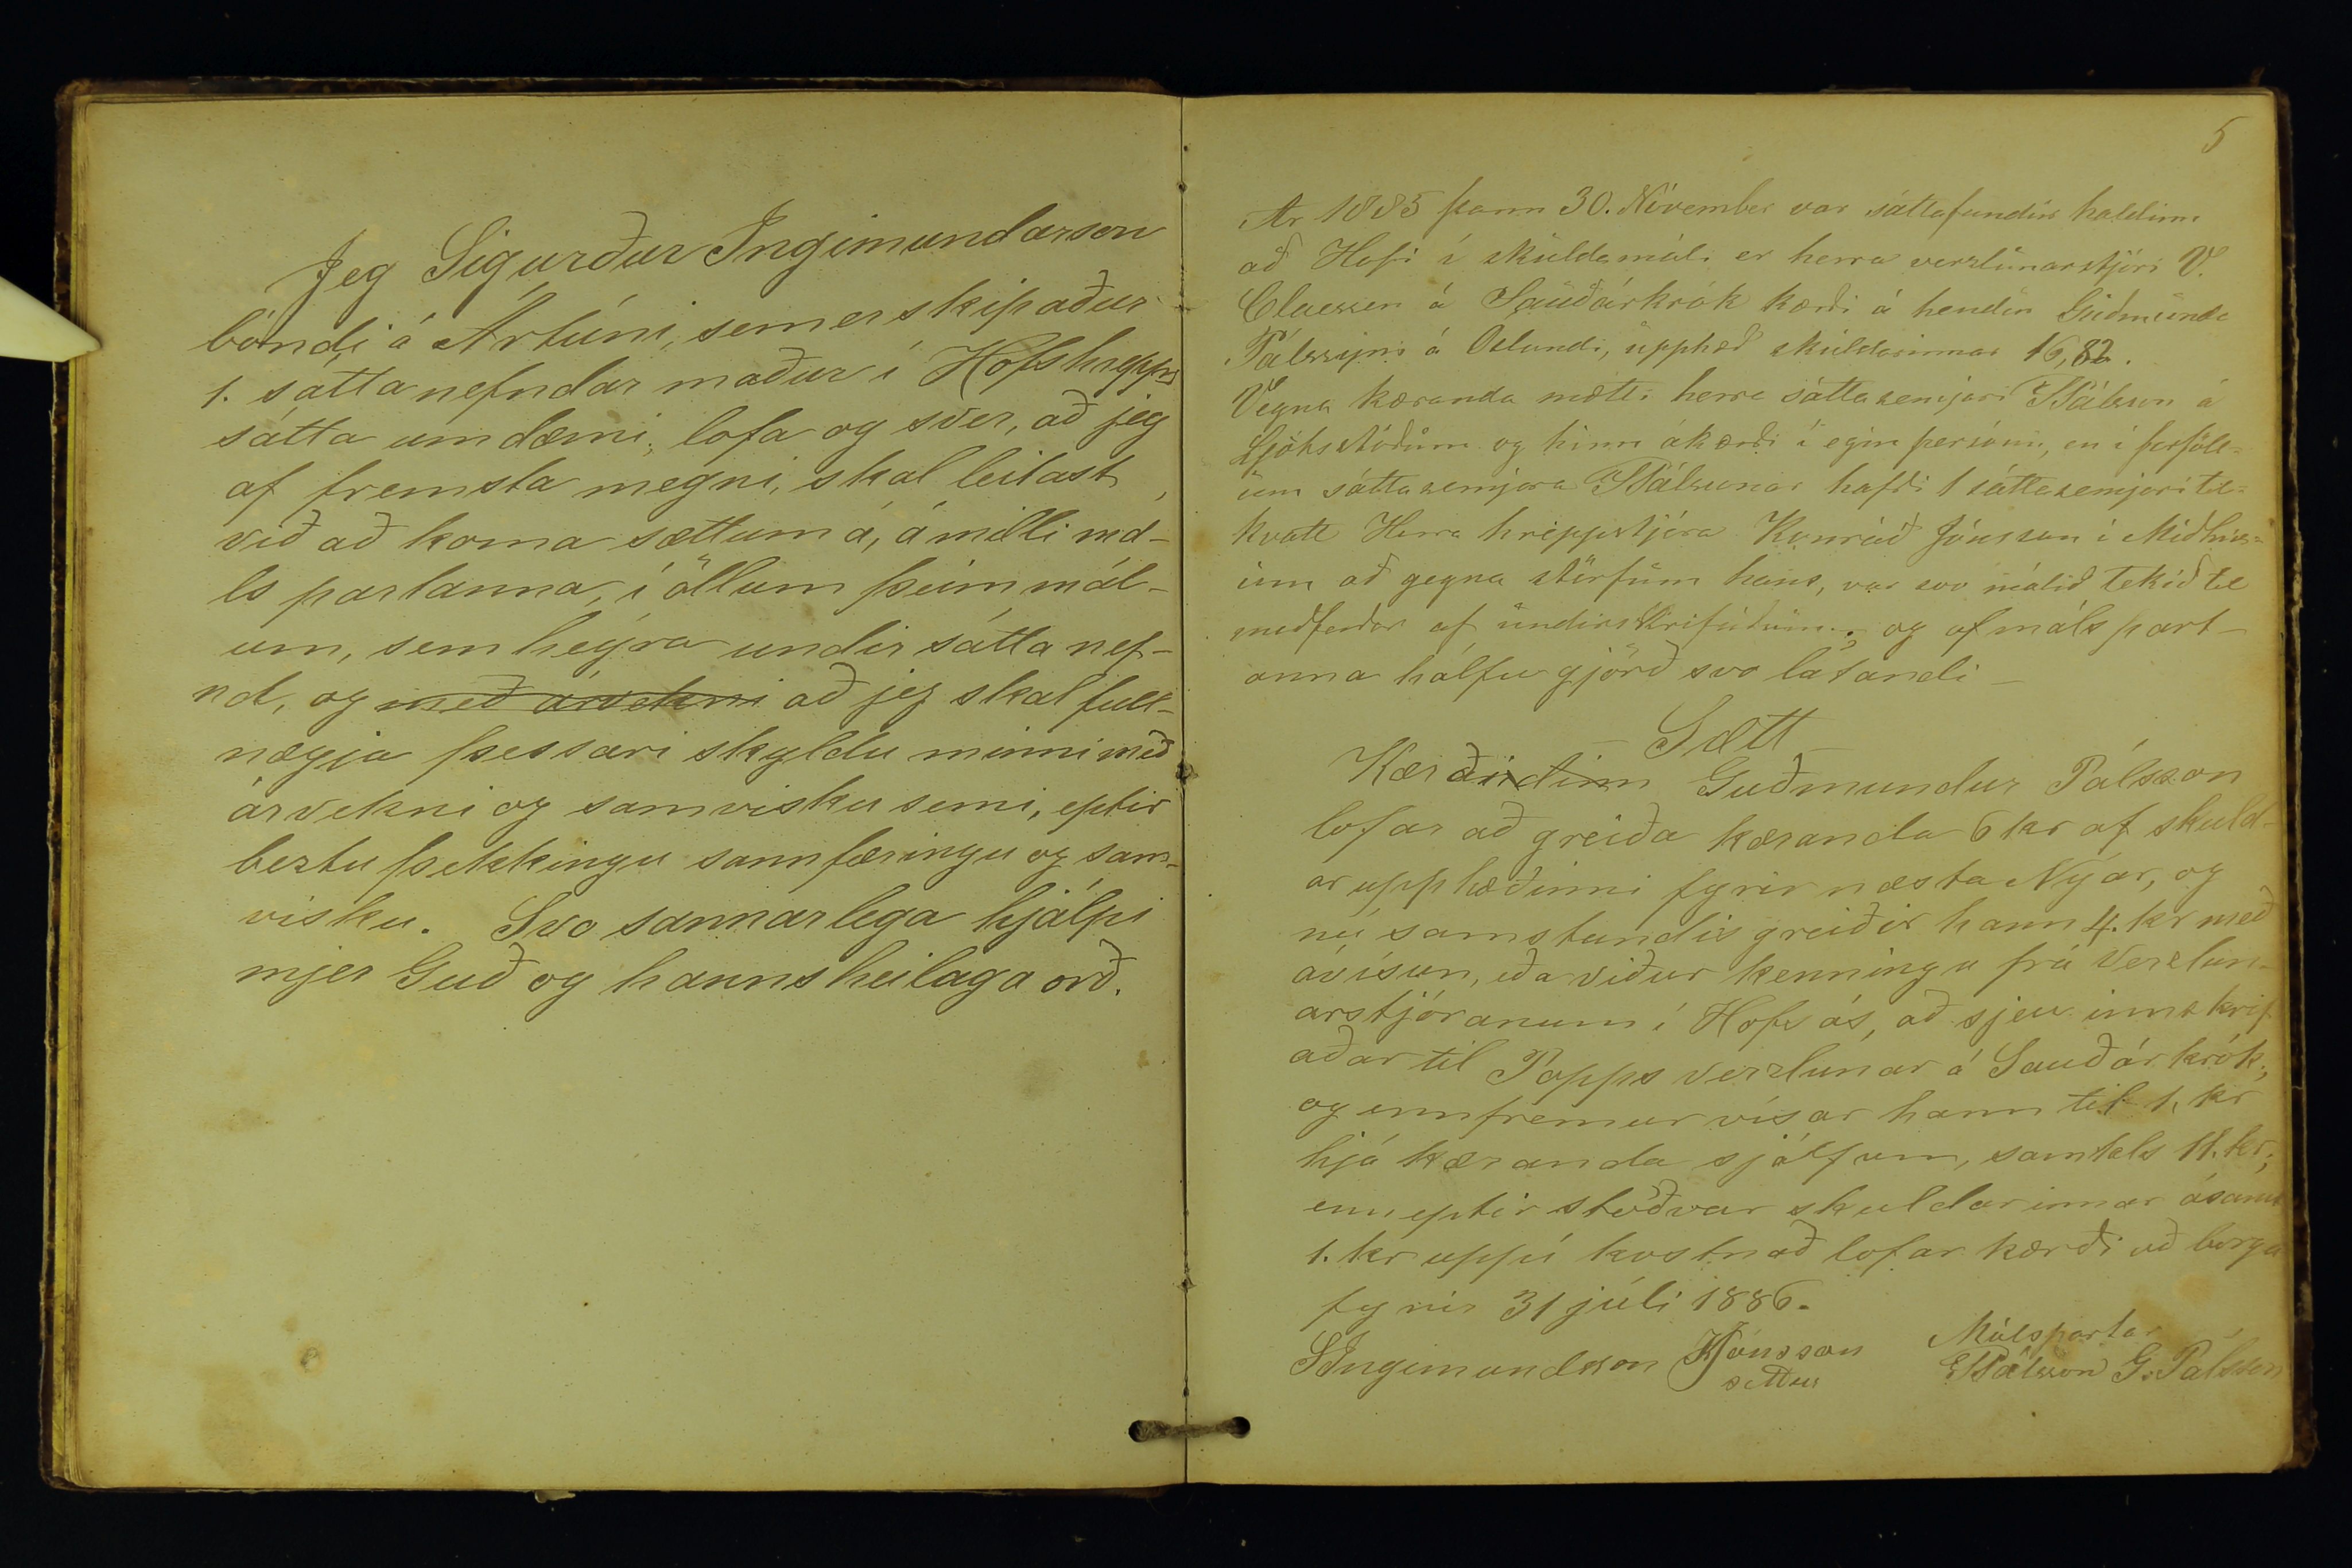 Jeg Sigurður Ingimundarson
bóndi á Ártúni, sem er skipaður
1. sáttanefndar maður í Hofshrepps
sátta umdæmi, lofa og sver, að jeg
af fremsta megni, skal leitast
við að koma sættum á, á milli má-
ls partanna, í öllum þeim mál-
um, sem heyra undir sátta nef-
nd, og með árvekni að jeg skal full-
nægja þessari skyldu minni með
árvekni og samvisku semi, eptir
beztu þekkingu sannfæringu og sam-
visku. Svo sannarlega hjálpi
mjer Guð og hanns heilaga orð.
5
Ar 1885 þann 30. Nóvember var sáttafundur haldinn
að Hofi í skuldamáli er herra verzlunarstjóri V.
Claessen á Sauðárkrók kærði á hendur Guðmundi
Pálssyni á Oslundi, upphæð skuldarinnar 16,82.
Vegna kæranda mætti herra sáttasemjari Pálsson á
Ljótsstöðum og hinn ákærði í egin persónu, en í forföll-
um sáttasemjara Pálssonar hafði 1 sáttasemjari til-
kvatt Herra hreppstjóra Konráð Jónsson í Miðhús-
um að gegna störfum hans, var svo málið tekið til
meðferðar af undirskrifuðum, og af máls part-
anna hálfu gjörð svo látandi –
– Sætt –
Kærðidinn Guðmundur Pálsson
lofar að greiða kæranda 6 kr af skuld-
ar upphæðinni fyrir næsta Nýar, og
nú samstundis greiðir hann 4. kr með
ávísun, eða viður kenningu frá Verzlun-
arstjóranum í Hofs ós, að sjeu innskrif
aðar til Popps verzlunar á Sauðárkrók;
og ennfremur vísar hann til 1. kr
hjá kæranda sjálfum, samtals 11. kr;
enn eptir stöðvar skuldarinnar ásamt
1. kr uppí kostnað lofar kærði að borga
fyrir 31 júli 1886.
SIngimundsson KJónsson settur
Málspartar
EBPálsson G. Pálsson